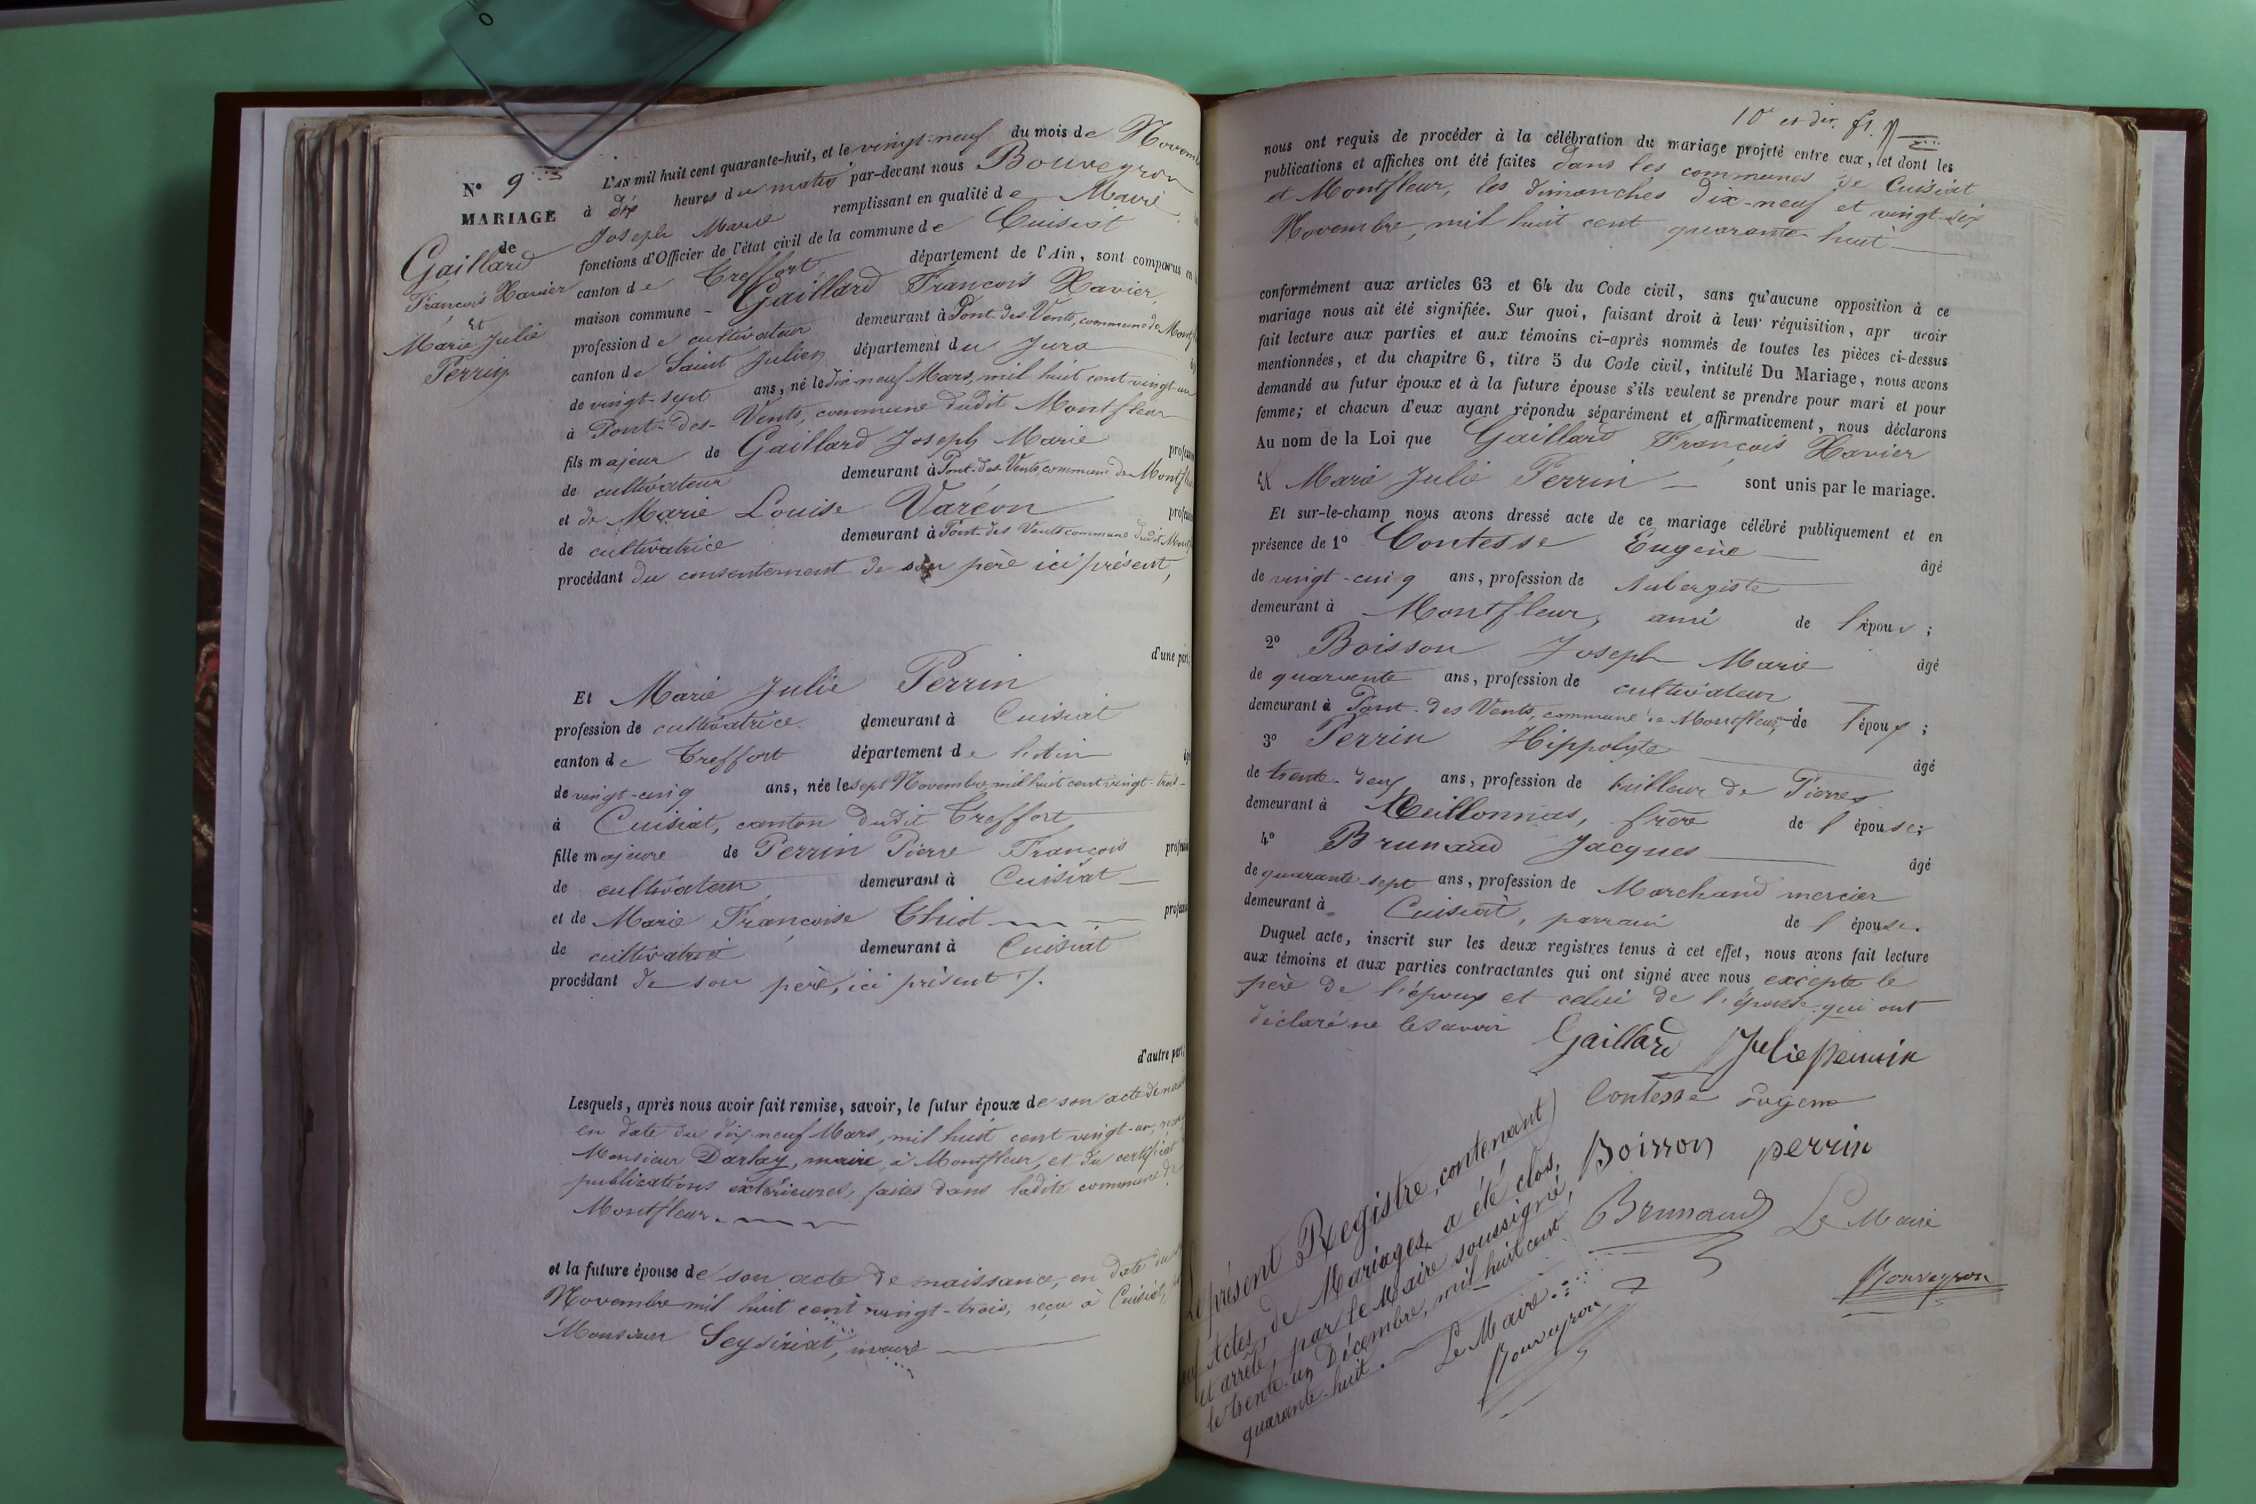 N° 9
MARIAGE
de
Gaillard
François Xavier
Et
Marie Julie
Perrin
L'AN mil huit cent quarante-huit, et le vingt-neuf du mois de Novem
à dix heures du matin par-devant nous Bouveyron
Joseph Marie remplissant en qualité de Maire
fonctions d'Officier de l'état civil de la commune de Cuisiat
canton de Treffort département de l'Ain, sont comparus en
maison commune - Gaillard François Xavier,
profession de cultivateur demeurant à Pont-des-Vents, commune de Montf
canton de Saint Julien département du Jura
de vingt-sept ans, né le dix-neuf Mars, mil huit cent vingt-un
à Pont-des-Vents, commune dudit Montfleur
fils majeur de Gaillard Joseph Marie profession
de cultivateur demeurant à Pont-des-Vents, commune de Montfleu
et de Marie Louise Varéon profession
de cultivatrice demeurant à Pont-des-Vents commune dudit Montf
procédant du consentement de son père ici présent,
d'une part,
Et Marie Julie Perrin
profession de cultivatrice demeurant à Cuisiat
canton de Treffort département de l'Ain
de vingt-cinq ans, née le sept Novembre mil huit cent vingt-trois
à Cuisiat, canton dudit Treffort
fille majeure de Perrin Pierre François profession
de cultivateur demeurant à Cuisiat
et de Marie Françoise Thiot profession
de cultivatrice demeurant à Cuisiat
procédant de son père, ici présent /.
d'autre part;
Lesquels, après nous avoir fait remise, savoir, le futur époux de son acte de nais
en date du dix-neuf Mars, mil huit cent vingt-un,
Monsieur Darlay, maire à Montfleur, et du certificat
publications extérieures, faites dans ladite commune de
Montfleur.
et la future épouse de son acte de naissance, en date du
Novembre mil huit cent vingt-trois, reçu à Cuisiat,
Monsieur Seysiriat, maire
10e et der. ft.
nous ont requis de procéder à la célébration du mariage projeté entre eux, et dont les
publications et affiches ont été faites dans les communes de Cuisiat
et Montfleur, les dimanches dix-neuf et vingt-six
Novembre, mil huit cent quarante-huit
conformément aux articles 63 et 64 du Code civil, sans qu'aucune opposition à ce
mariage nous ait été signifiée. Sur quoi, faisant droit à leur réquisition, apr avoir
fait lecture aux parties et aux témoins ci-après nommés de toutes les pièces ci-dessus
mentionnées, et du chapitre 6, titre 5 du Code civil, intitulé Du Mariage, nous avons
demandé au futur époux et à la future épouse s'ils veulent se prendre pour mari et pour
femme; et chacun d'eux ayant répondu séparément et affirmativement, nous déclarons
Au nom de la Loi que Gaillard François Xavier
Et Marie Julie Perrin sont unis par le mariage.
Et sur-le-champ nous avons dressé acte de ce mariage célébré publiquement et en
présence de 1° Contesse Eugène âgé
de vingt-cinq ans, profession de Aubergiste
demeurant à Montfleur, ami de l'époux;
2° Boisson Joseph Marie âgé
de quarante ans, profession de cultivateur
demeurant à Pont-des-Vents, commune de Montfleur, de l'époux;
3° Perrin Hippolyte âgé
de trente-deux ans, profession de tailleur de Pierres
demeurant à Meillonnas, frère de l'épouse;
4° Brunaud Jacques âgé
de quarante-sept ans, profession de Marchand mercier
demeurant à Cuisiat, parrain de l'épouse.
Duquel acte, inscrit sur les deux registres tenus à cet effet, nous avons fait lecture
aux témoins et aux parties contractantes qui ont signé avec nous excepté le
père de l'époux et celui de l'épouse qui ont
déclaré ne le savoir
Gaillard Julie Perrin
Contesse Eugene
Boisson perrin
Brunaud Le Maire
Bouveyron
Le présent Registre, contenant
neuf Actes de Mariages a été clos,
et arrêté, par le Maire soussigné,
le trente-un Décembre, mil huit cent
quarante-huit.
Le Maire
Bouveyron